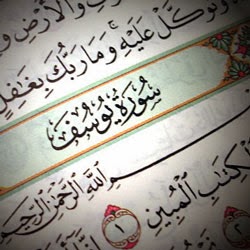 وَٱلْأَرْضِ
وَتَوَكَّلْ عَلَيْهِ وَمَا رَبُّكَ بِغَٰفِلٍ
سُورَةُ يُوسُفَ
بِسْمِ ٱللَّهِ ٱلرَّحْمَٰنِ ٱلرَّحِيمِ
ٱلْكِتَٰبِ ٱلْمُبِينِ ١